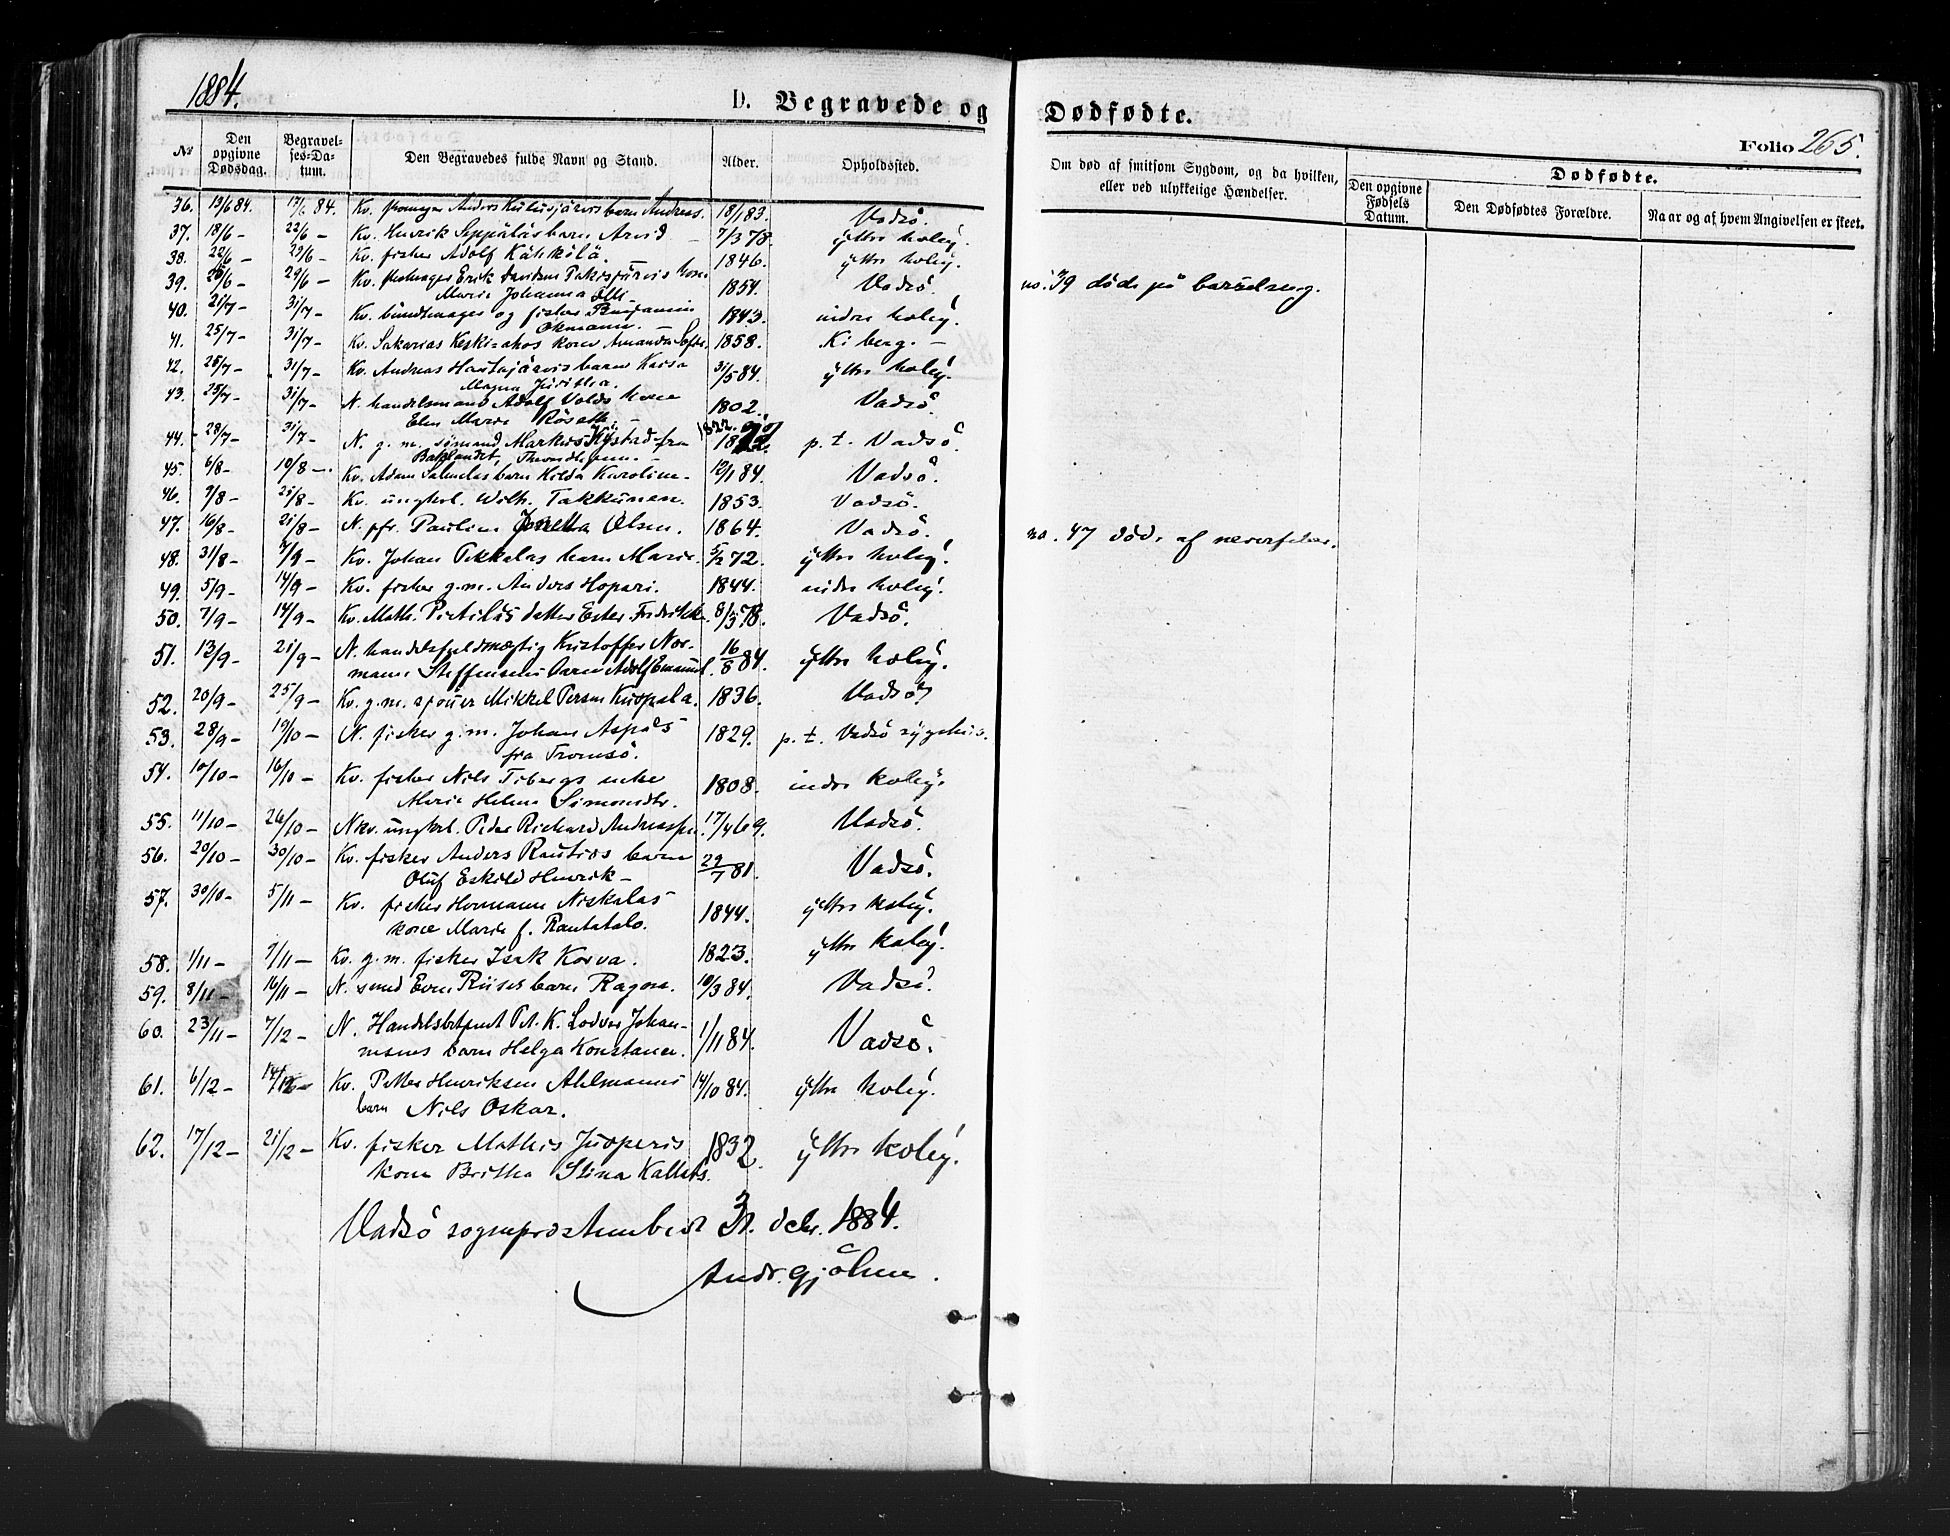 1884.
D. Begravede og Dødfødte.
Folio 265.
No
Den opgivne Dødsdag.
Begravelses-Datum.
Den Begravedes fulde Navn og Stand.
Alder.
Opholdssted.
Om død af smitsom Sygdom, og da hvilken, eller ved ulykkelige Hændelser.
Dødfødte.
Den opgivne Fødsels Datum.
Den Dødfødtes Forældre.
Naar og af hvem Angivelsen er skeet.
36. 13/6 84. 17/6 84. Kv. Anders barn Andreas. 18/1 83. Vadsö.
37. 18/6 – 22/6 – Kv. Henrik Seppäläs barn Arvid – 7/3 78. ÿttre koleÿ.
38. 22/6 – 29/6 – Kv. fisker Adolf Kähkölä. 1846. ÿttre koleÿ.
39. 26/6 – 29/6 – Kv. Erik Davidsen kone 1854. Vadsö.
Maria Johanna
no. 39 døde på barselseng.
40. 21/7 – 31/7 – Kv. og fisker Benjamin 1843. indre koleÿ.
Okmann. –
41. 25/7 – 31/7 – Kv. Sakarias Keski-ahos kone Amanda 1858. Kiberg. –
42. 25/7 – 31/7 – Kv. Andreas Hautajärvis barn Kaisa 31/5 84. ÿttre koleÿ.
Magna
43. 25/7 – 31/7 – N. handelsmand Adolf Volds kone 1802. Vadsö.
Elen Marie
44. 28/7 – 31/7 – N. g. m. sömand Markus fra 1822. p. t. Vadsö.
Baklandet, Throndhjem. –
45. 6/8 – 10/8 – Kv. Adam Salmelas barn Hilda Karoline. 12/1 84. Vadsö.
46. 7/8 – 21/8 – Kv. ungkrl. Wilh. Takkunen. 1853. Vadsö.
47. 16/8 – 21/8 – N. pfr. Pauline Olsen. 1864. Vadsö.
no. 47 död. af nervefeber.
48. 31/8 – 7/9 – Kv. Johan Pekkalas barn Marie. 5/2 72. ÿttre koleÿ.
49. 5/9 – 14/9 – Kv. fisker g. m. Anders Hopari. 1844. indre koleÿ.
50. 7/9 – 14/9 – Kv. Math. Pietiläs datter Ester Fredrikke. 8/3 78. Vadsö.
51. 13/9 – 21/9 – N. handelsfuldmægtig Kristoffer Nor-
mann Steffensens barn Adolf Emanuel. 16/8 84. ÿttre koleÿ.
52. 20/9 – 25/9 – Kv. g. m. Mikkel Persen Kuoppala. 1836. Vadsö.
53. 28/9 – 10/10 – N. fisker g. m. Johan Aspås 1829. p. t. Vadsö sygehus.
fra Tromsö.
54. 10/10 – 16/10 – Kv. fisker Nils Tibergs enke 1808. indre koleÿ.
Maria Helena Simonsdtr.
55. 11/10 – 26/10 – Nkv. ungkrl. Peder Richard Andreassen. 17/4 69. Vadsö.
56. 20/10 – 30/10 – Kv. fisker Anders Rautios barn 29/7 81. Vadsö.
Oluf Eskild Henrik –
57. 30/10 – 5/11 – Kv. fisker Hermann Niskalas 1844. ÿttre koleÿ.
kone Maria f. Rantatalo.
58. 1/11 – 7/11 – Kv. g. m. fisker Isak Korva. 1823. ÿttre koleÿ.
59. 8/11 – 16/11 – N. smed Even Riises barn Ragna. 10/3 84. Vadsö.
60. 23/11 – 7/12 – N. Handelsbetjent Pet. K. Lodver Johan-
nesens barn Helga Konstanse. 1/11 84. Vadsö.
61. 6/12 – 14/12 – Kv. Petter Henriksen Ahlmanns 14/10 84. ÿttre koleÿ.
barn Nils Oskar.
62. 17/12 – 21/12 – Kv. fisker Mathis Juoperis 1832. ÿttre koleÿ.
kone Britha Stina
Vadsö sogneprestembed 31. dcbr. 1884.
Andr. Gjölme.